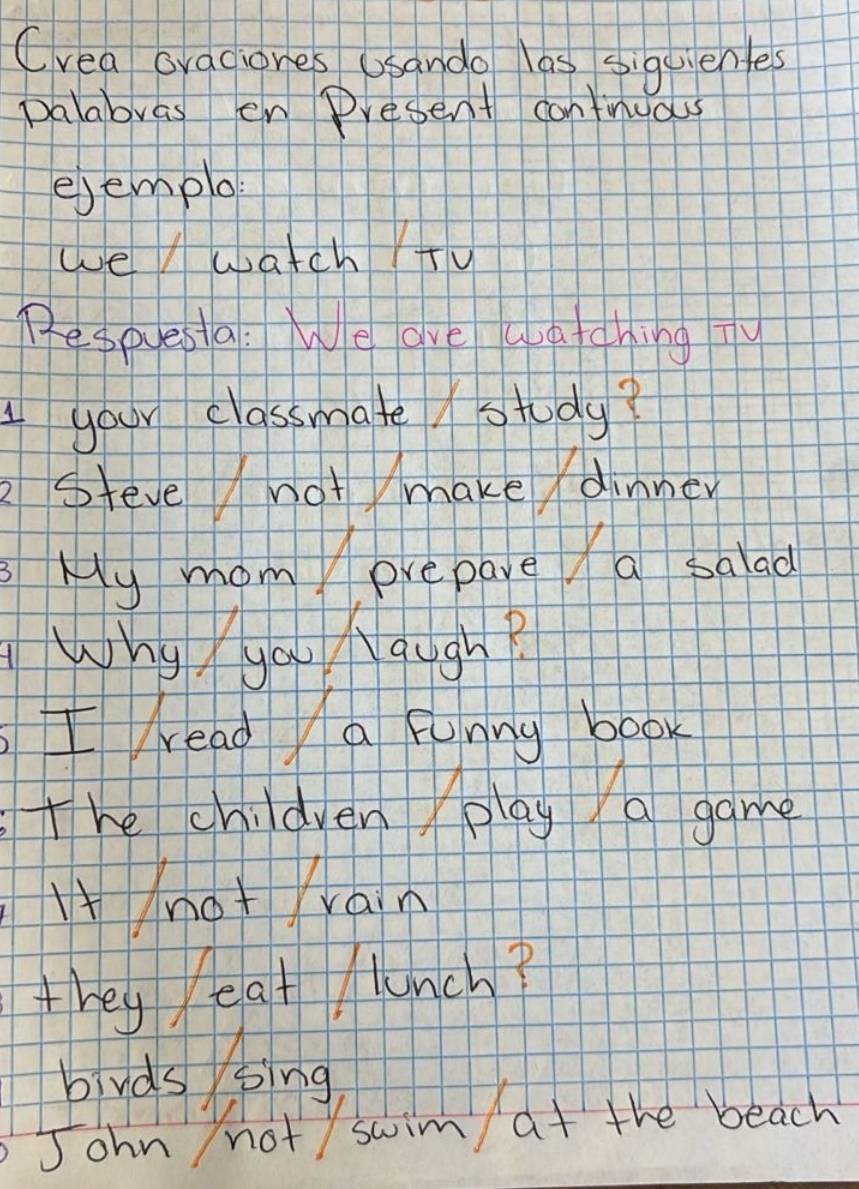 Crea oraciones usando las siguientes
palabras en Present continuous
ejemplo:
we / watch / TV
Respuesta: We are watching TV
1 your classmate / study?
2 Steve / not / make / dinner
3 My mom / prepare / a salad
4 Why / you / laugh?
5 I / read / a funny book
The children / play / a game
It / not / rain
they / eat / lunch?
birds / sing
John / not / swim / at the beach